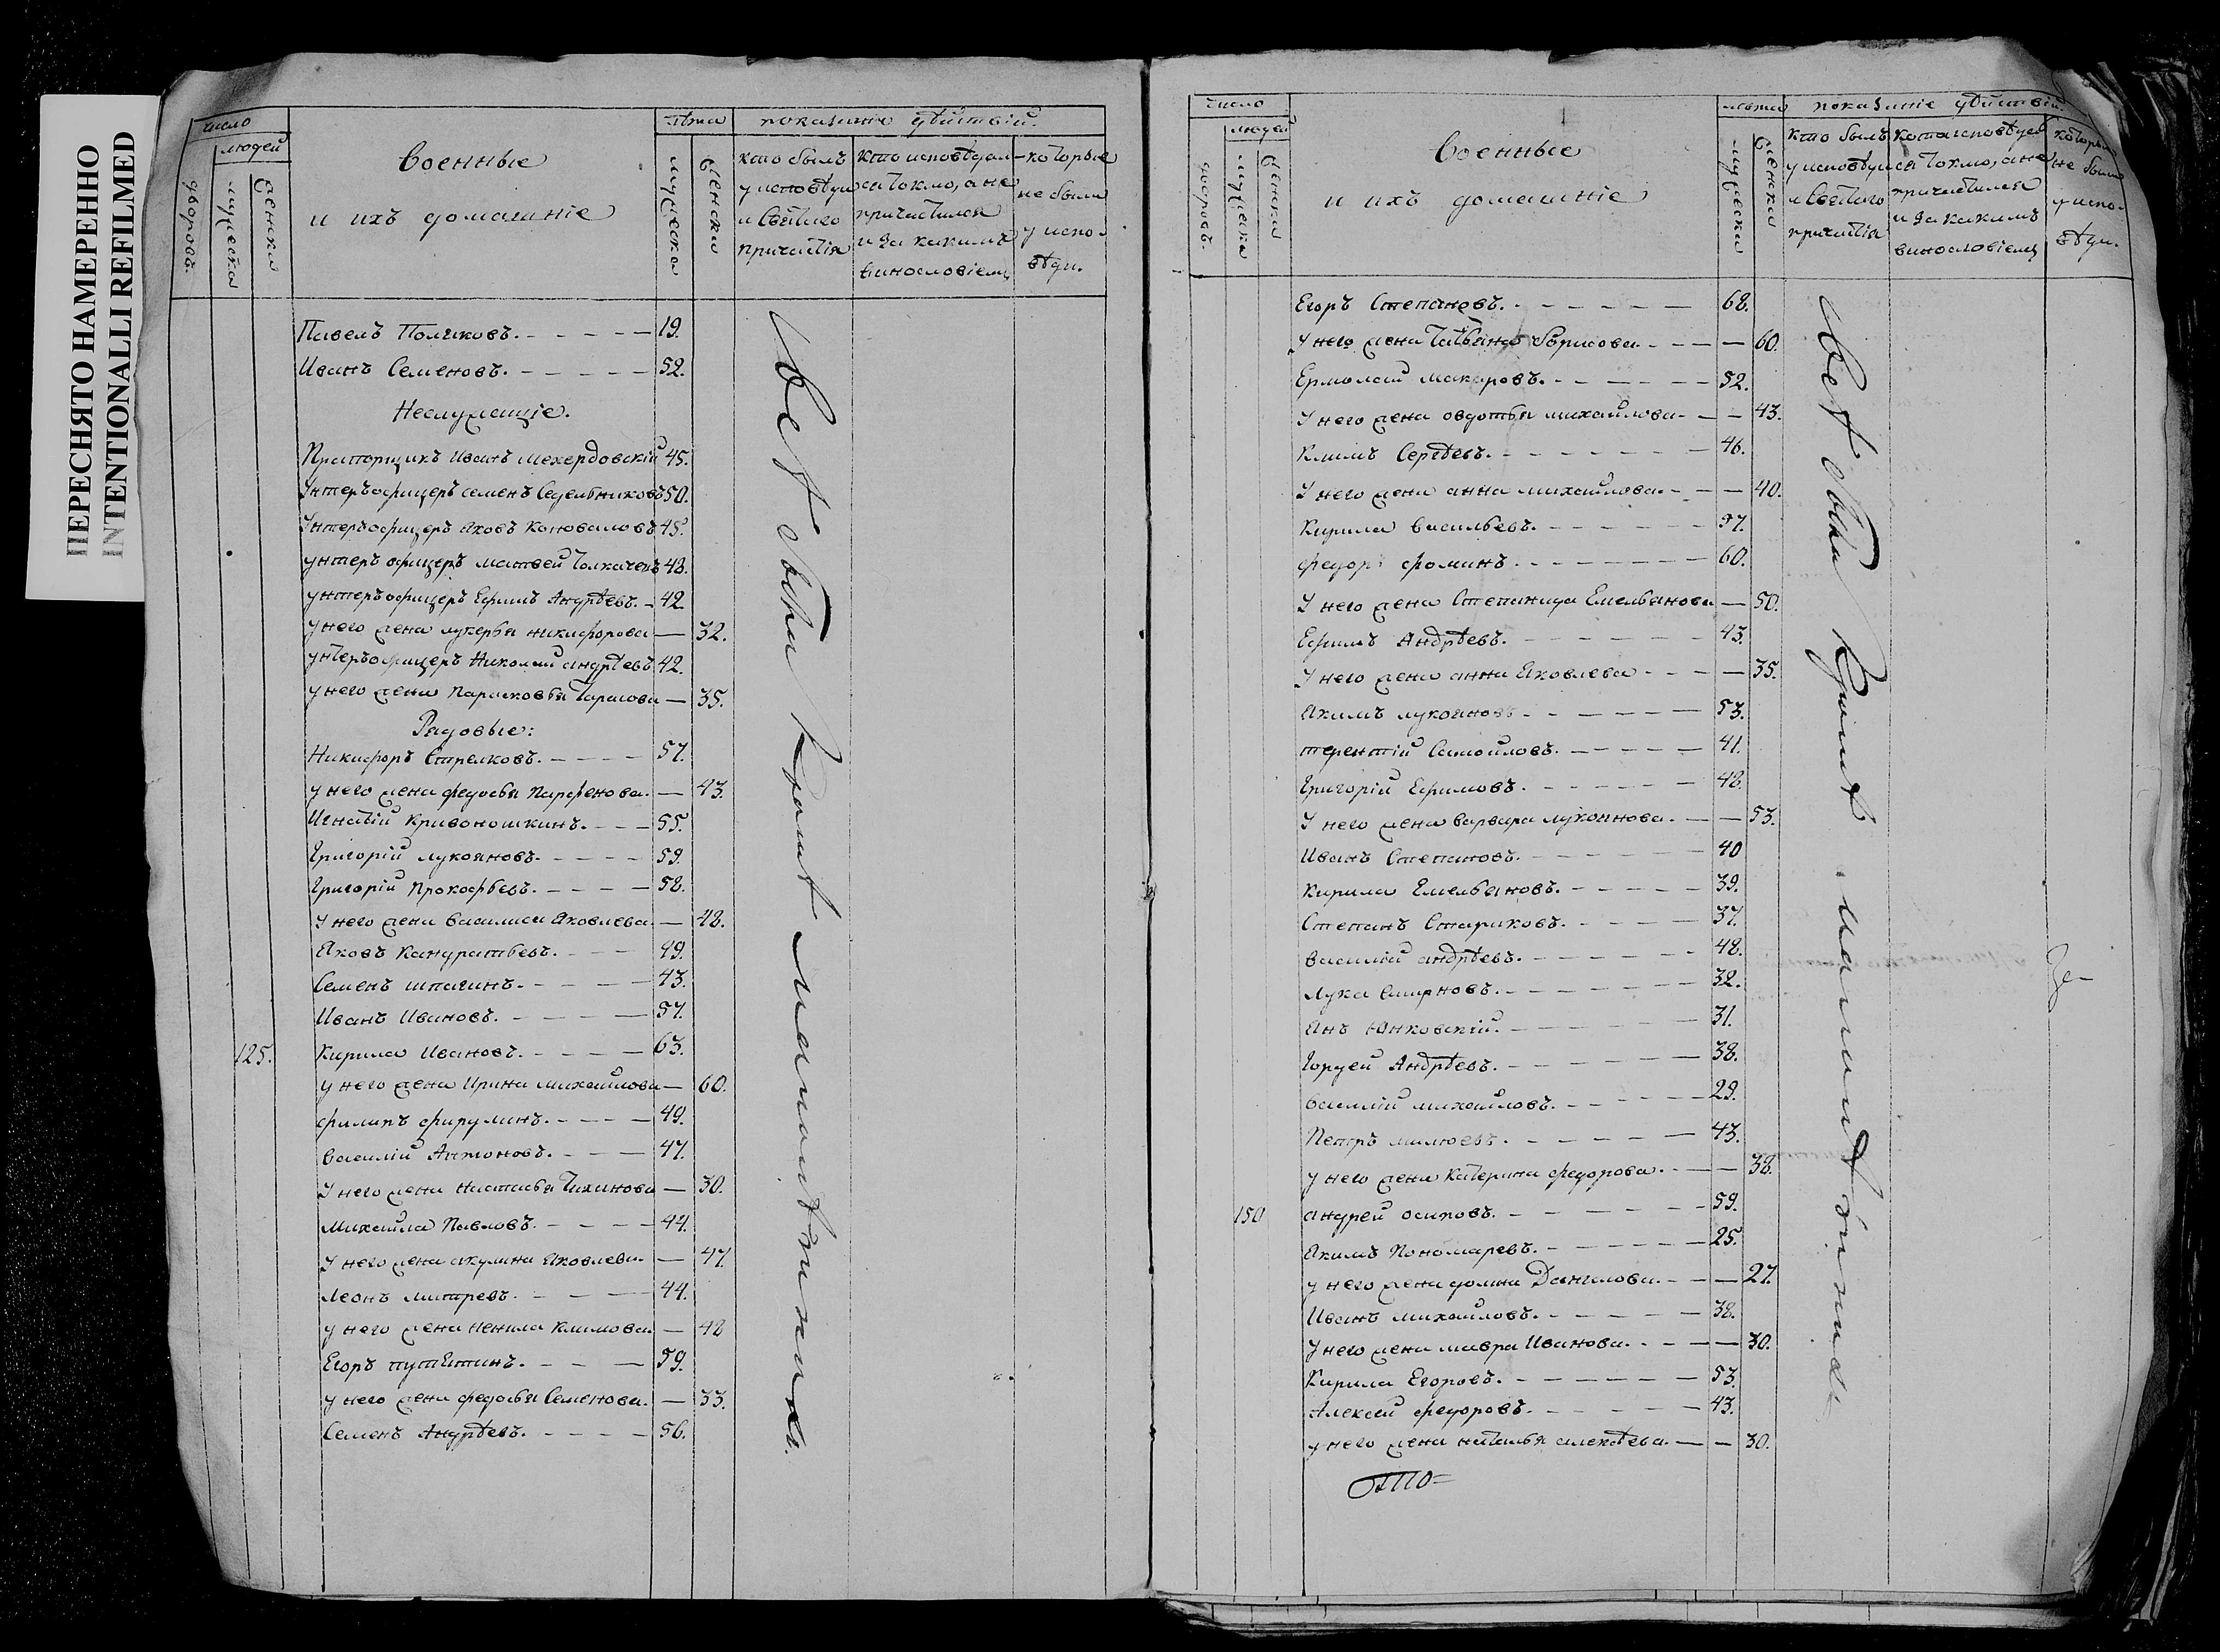 ПЕРЕСНЯТО НАМЕРЕННО
INTENTIONALLI REFILMED
число
людей
дворовъ.
мужеска
женска
Военные
и ихъ домашнiе
лѣта
мужеска
женска
показанiе дѣйствiй.
кто былъ
у исповѣди
и Святаго
причастiя
кто исповѣдал-
ся токмо, а не
причастился
и за какимъ
винословiемъ
которые
не были
у испо-
вѣди.
Павелъ Поляковъ. 19.
Иванъ Семеновъ. 52.
Неслужащiе.
Прапорщикъ Иванъ 45.
Унтеръ офицеръ Семенъ Седельниковъ 50.
Унтеръ офицеръ Яковъ Коноваловъ 45.
унтеръ офицеръ матвей Толкачевъ 48.
унтеръ офицеръ Ефимъ Андрѣевъ. 42.
у него жена лукерья никифорова — 32.
унтеръ офицеръ Николай андрѣевъ 42.
у него жена Парасковья Тарасова — 35.
Рядовые:
Никифоръ Стрелковъ. 57.
у него жена федосья Парфенова. — 43.
Игнатiй Кривоношкинъ. 55.
Григорiй лукояновъ. 59.
Григорiй Прокофьевъ. 58.
У него жена василиса Яковлева. — 48.
Яковъ Кандратьевъ. 49.
Семенъ шпагинъ. 43.
Иванъ Ивановъ. 57.
125. Кирила Ивановъ. 63.
у него жена Ирина михайлова — 60.
филипъ фирулинъ. 49.
василiй Антоновъ. 47.
У него жена настасья Тихинова — 30.
михайла Павловъ. 44.
У него жена акулина Яковлева. — 47
Леонъ митревъ. 44.
у него жена ненила климова. — 48
Егоръ путѣтинъ. 59.
у него жена федосья Семенова. — 33.
Семенъ Андрѣевъ. 56.
число
людей
дворовъ.
мужеска
женска
Военные
и ихъ домашнiе
лѣта
мужеска
женска
показанiе дѣйствiй
кто былъ
у исповѣди
и Святаго
причастiя
кто исповѣдал
ся токмо, а не
причастился
и за какимъ
винословiемъ
которые
не были
у испо-
вѣди.
Егоръ Степановъ. 68.
У него жена Татьяна Борисова. — 60.
Ермолай макаровъ. 52.
У него жена овдотья михайлова — 43.
Климъ Сергѣевъ. 46.
У него жена анна михайлова. — 40.
Кирила васильевъ. 37.
федоръ фоминъ. 60.
У него жена Степанида Емельянова — 50.
Ефимъ Андрѣевъ. 43.
У него жена анна Яковлева — 35.
Якимъ лукояновъ 53.
терентiй Самойловъ. 41.
Григорiй Ефимовъ. 48.
У него жена варвара лукоянова. — 53.
Иванъ Степановъ. 40
Кирила Емельяновъ. 39.
Степанъ Стариковъ. 37.
василiй андрѣевъ. 48.
Лука Смирновъ. 32.
Янъ Янковскiй. 31.
Гордей Андрѣевъ. 38.
василiй михайловъ. 29.
Петръ 43.
у него жена Катерина федорова. — 38.
150 андрей осиповъ. 59.
Якимъ Пономаревъ. 25.
у него жена домна Данилова. — 27.
Иванъ михайловъ. 38.
у него жена мавра Иванова. — 30.
Кирила Егоровъ. 53.
Алексей федоровъ. 43.
у него жена наталья алексѣева. — 30.